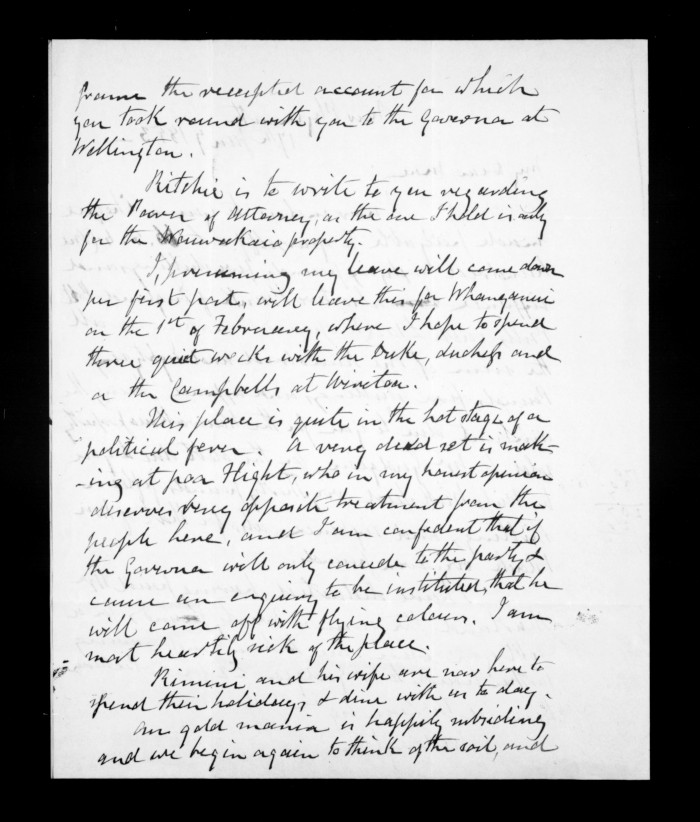 frame the receipted account for which
you took round with you to the Governor at
Wellington.
Ritchie is to write to you regarding
the Power of Attorney, as the one I hold is only
for the property.
I, presuming my leave will come down
per first post, will leave this for Whanganui
on the 1st of February, where I hope to spend
three quiet weeks with the Duke, duchess and
or the Campbells at Wiritoa.
This place is quite in the hot stage of a
political fever. A very dead set is mak-
-ing at poor Flight, who in my honest opinion
deserves very opposite treatment from the
people here, and I am confident that if
the Governor will only concede to the party &
cause an enquiry to be instituted, that he
will come off with flying colours. I am
most heartily sick of the place.
Rimini and his wife are now here to
spend their holidays & dine with us to day.
Our gold mania is happily subsiding
and we begin again to think of the soil, and